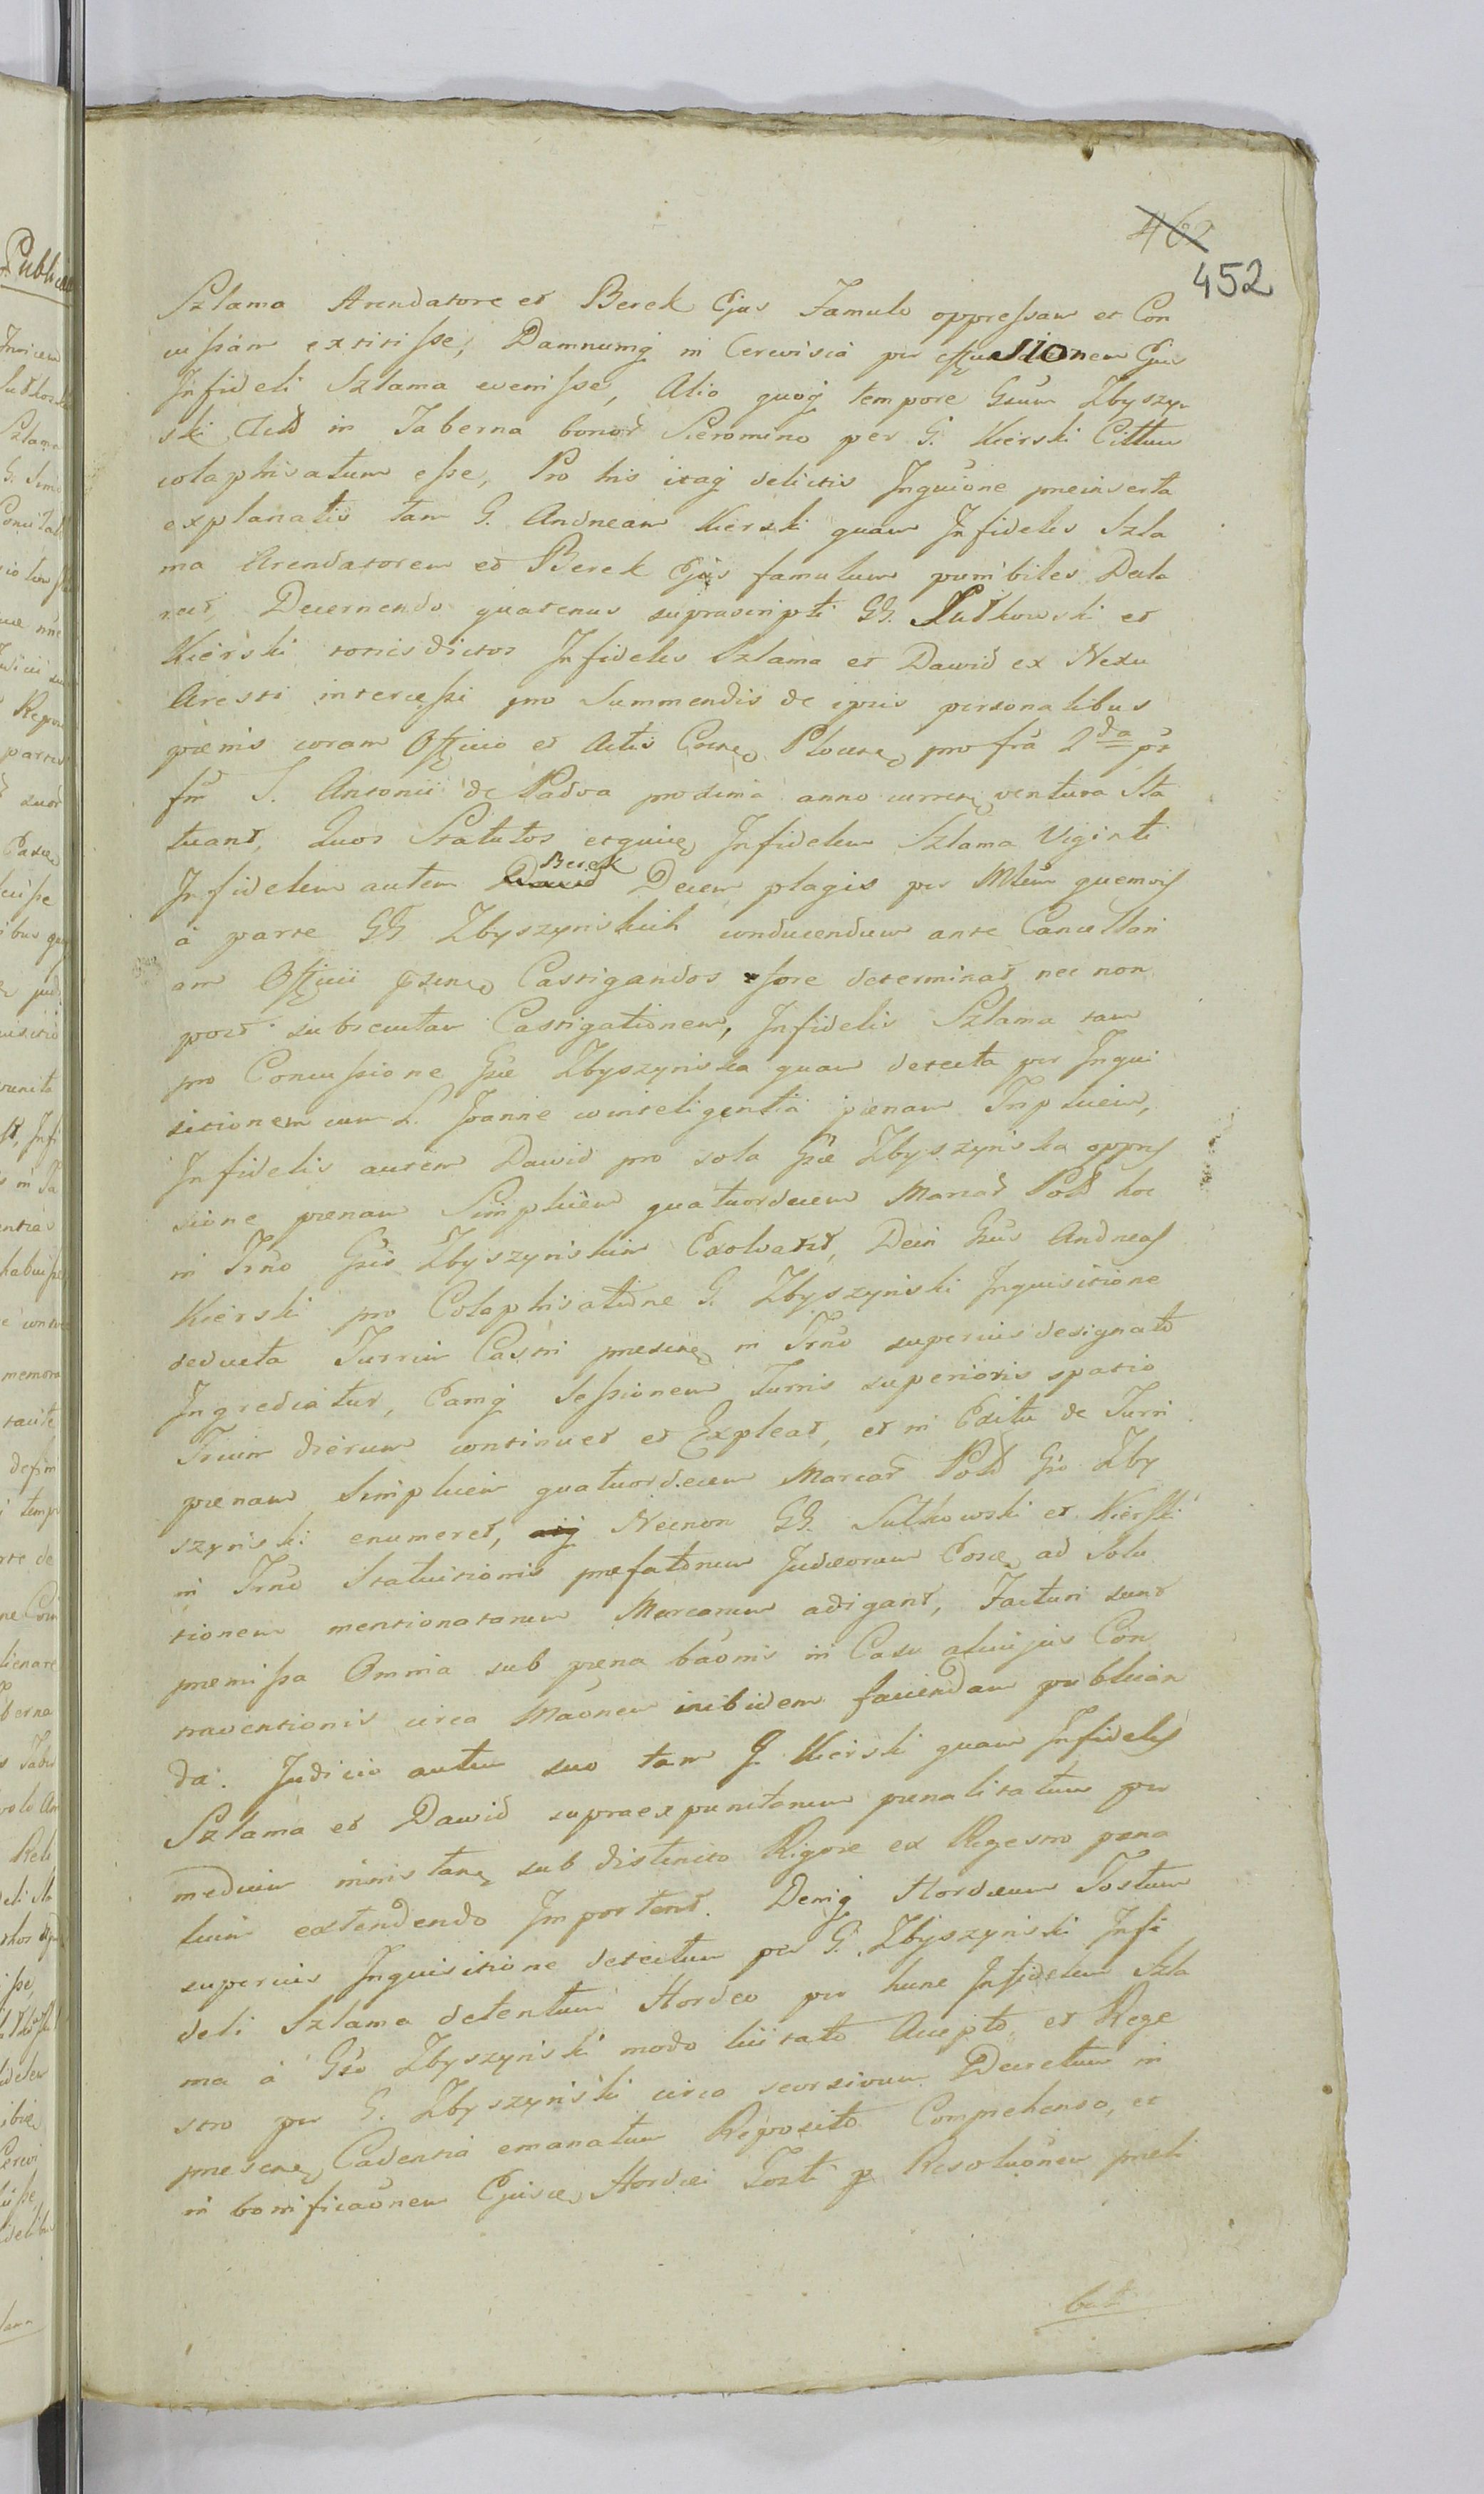 462
452
Szlama Arendatore et Berek Ejus Famulo oppressam et Con
cussam extitisse, Damnumq in Cerevisia per effusionem Ejus
Infideli Szlama evenisse, Alio quoq tempore Gsum Zbyszyn
ski in Taberna bonor Sieromino per G. Kierski Cittum
colaphisatum esse, Pro his itaq delictis Inquione preinserta
explanatis tam G. Andream Kierski quam Infideles Szla
ma Arendatorem et Berek Ejus famulum punibiles Decla
rat, Decernendo quatenus suprascripti GG. Sutkowski et
Kierski toties dictos Infideles Szlama et Dawid ex Nexu
Aresti intercessi pro Summendis de ipsis personalibus
pœnis coram Officio et Actis Plocens pro fria 2da pt
fm S. Antonii de Padva proxima anno currens ventura Sta
tuant, Quos Statutos Infidelem Szlama Viginti
Infidelem autem Dawid Berek Decem plagis per quemvis
à parte GG Zbyszynskich conducendum ante Cancellari
am Officii psens Castigandos fore determinat nec non
post subsecutam Castigationem, Infidelis Szlama tam
pro Concussione Gsæ Zbyszynska quam detecta per Inqui
sitionem cum L. Joanne cointeligentia pœnam Triplicem,
Infidelis autem Dawid pro sola Gsæ Zbyszynska oppres
sione pœnam Simplicem quatuordecem Marcar Pold hoc
in Trno Gsis Zbyszynskim Exolvant, Dein Gsus Andreas
Kierski pro Colaphisatione G. Zbyszynski Inquisitione
deducta Turrim Castri presens in Trno superius designato
Ingrediatur, Eamq Sessionem Turris superioris spatio
Trium dierum continuet et Expleat, et in Exitu de Turri
pœnam simplicem quatuordecem Marcar Pold Gso Zby
szynski enumeret, Necnon GG. Sutkowski et Kierski
in Trno Statuitionis prefatorum Judæorum Eosd ad Solu
tionem mentionatarum Marcarum adigant, Facturi sunt
premissa Omnia sub pœna baonis in Casu alicujus Con
traventionis circa Maonem inibidem faciendam publican
da. Judicio autem suo tam G. Kierski quam Infideles
Szlama et Dawid supraexpunctarum pœnalitatum per
medium sub distincto Rigore ex Regestro pœna
lium extendendo Importent. Deniq Hordeum Tostum
superius Inquisitione detectum per G. Zbyszynski Infi
deli Szlama detentum Hordeo per hunc Infidelem Szla
ma à Gso Zbyszynski modo licitato Accepto et Rege
stro per G. Zbyszynski circa seorsivum Decretum in
presens Cadentia emanatum Reposito Comprehenso, et
in bonificaonem Ejusd Hordei Tosti p Resoluonem preti